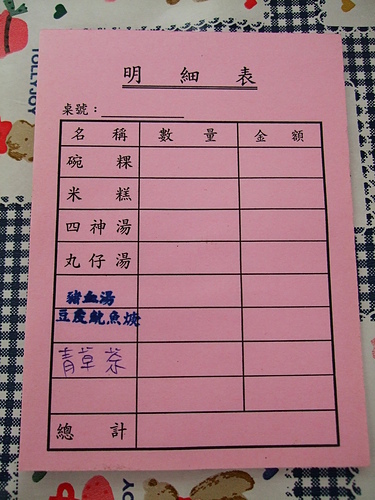 TOLLYJOY
明細表
桌號：
名稱 數量 金額
碗粿
米糕
四神湯
丸仔湯
豬血湯
豆皮魷魚焿
青草茶
總計